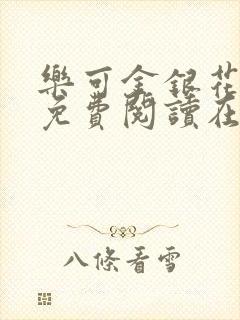 樂可金銀花
免費閱讀在
八條看雪